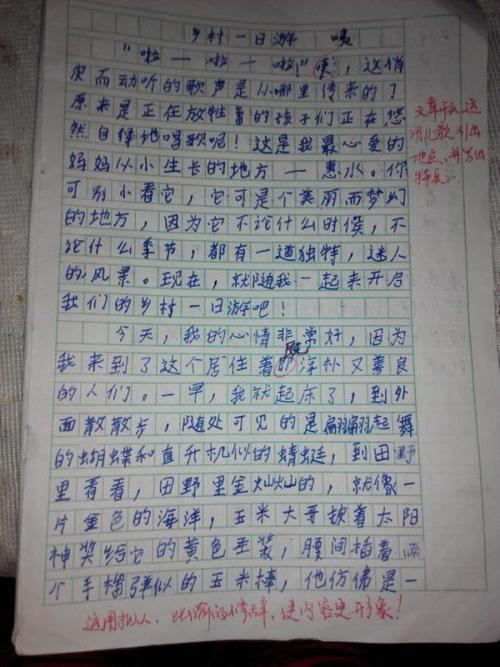 乡村一日游
"啦—啦—啦!"咦,这俏
皮而动听的歌声是从哪里传来的?
原来是正在放牲畜的孩子们正在悠
然自得地唱歌呢!这是我最心爱的
妈妈从小生长的地方—惠水。你
可别小看它,它可是个美丽而梦幻
的地方,因为它不论什么时候,不
论什么季节,都有一道独特,迷人
的风景。现在,就随我一起来开启
我们的乡村一日游吧!
今天,我的心情非常好,因为
我来到了这个居住着既淳朴又善良
的人们。一早,我就起床了,到外
面散散步,随处可见的是翩翩起舞
的蝴蝶和直升机似的蜻蜓,到田野
里看看,田野里金灿灿的,就像一
片金色的海洋,玉米大哥披着太阳
神奖给它的黄色圣装,腰间插着两
个手榴弹似的玉米棒,他仿佛是一
文章开头
地点,并写出
特点。
运用拟人、比喻的修辞,使内容更形象!